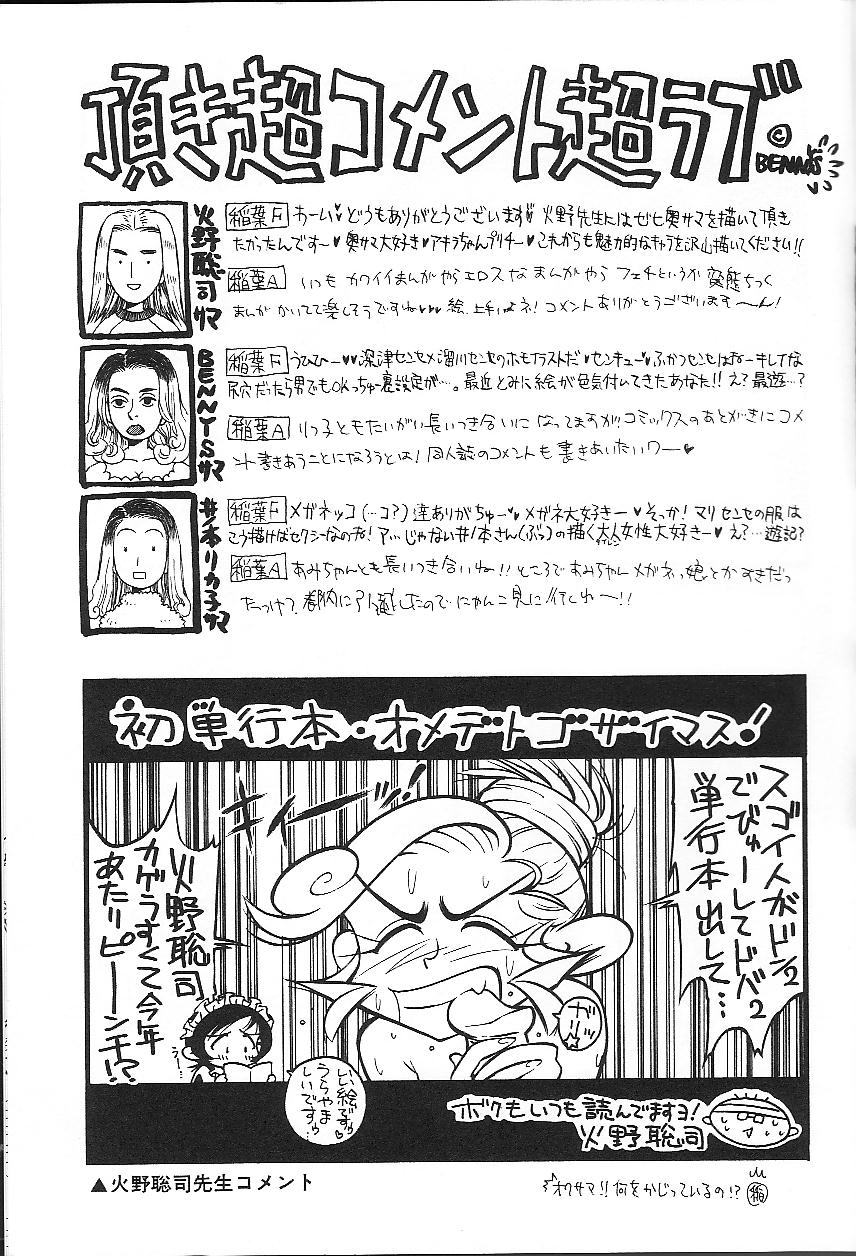 頂き超コメント超ラブ
©BENNY'S
火野聡司サマ
稲葉F わーい♥どうもありがとうございます♥火野先生にはぜひ奥サマを描いて頂き
たかったんです〜♥奥サマ大好き♥アキラちゃんプリチー♥これからも魅力的なキャラを沢山描いてください!!
稲葉A いつもカワイイまんがやらエロスなまんがやらフェチというか変態ちっく
まんがかいてて楽しそうですね♥♥♥絵、上手いよネ!コメントありがとうございます〜ん!
BENNY'Sサマ
稲葉F うひひー♥♥深津センセ×溜川センセのホモイラストだ♥センキュー♥ふかつセンセは
穴だったら男でもOKっちゅー裏設定が…。最近とみに絵が色気付いてきたあなた!!え?最遊…?
稲葉A りっ子ともたいがい長いつき合いになってますがコミックスのあとがきにコメ
ント書きあうことになろうとは!同人誌のコメントも書きあいたいワー♥
井ノ本リカ子サマ
稲葉F メガネッコ(…コ?)達ありがちゅー♥メガネ大好きー♥そっか!マリセンセの服は
こう描けばセクシーなのね!ア…じゃない井ノ本さん(ぷっ)の描く大人女性大好きー♥え?…遊記?
稲葉A あみちゃんとも長いつき合いね!!ところであみちゃんメガネっ娘とかすきだっ
たっけ?都内に引越したのでにゃんこ見に行くわ〜!!
初単行本・オメデトゴザイマス!
スゴイ人がドン2
でびゅーしてドバ2
単行本出して…
キィーッ!
火野聡司
カゲうすくて今年
あたりピーンチ!?
ガリッ
うー…
いい絵ですゥ♥
うらやま
しいですゥ…
ボクもいつも読んでますヨ!
火野聡司
▲火野聡司先生コメント
オクサマ!!何をかじっているの!? 稲